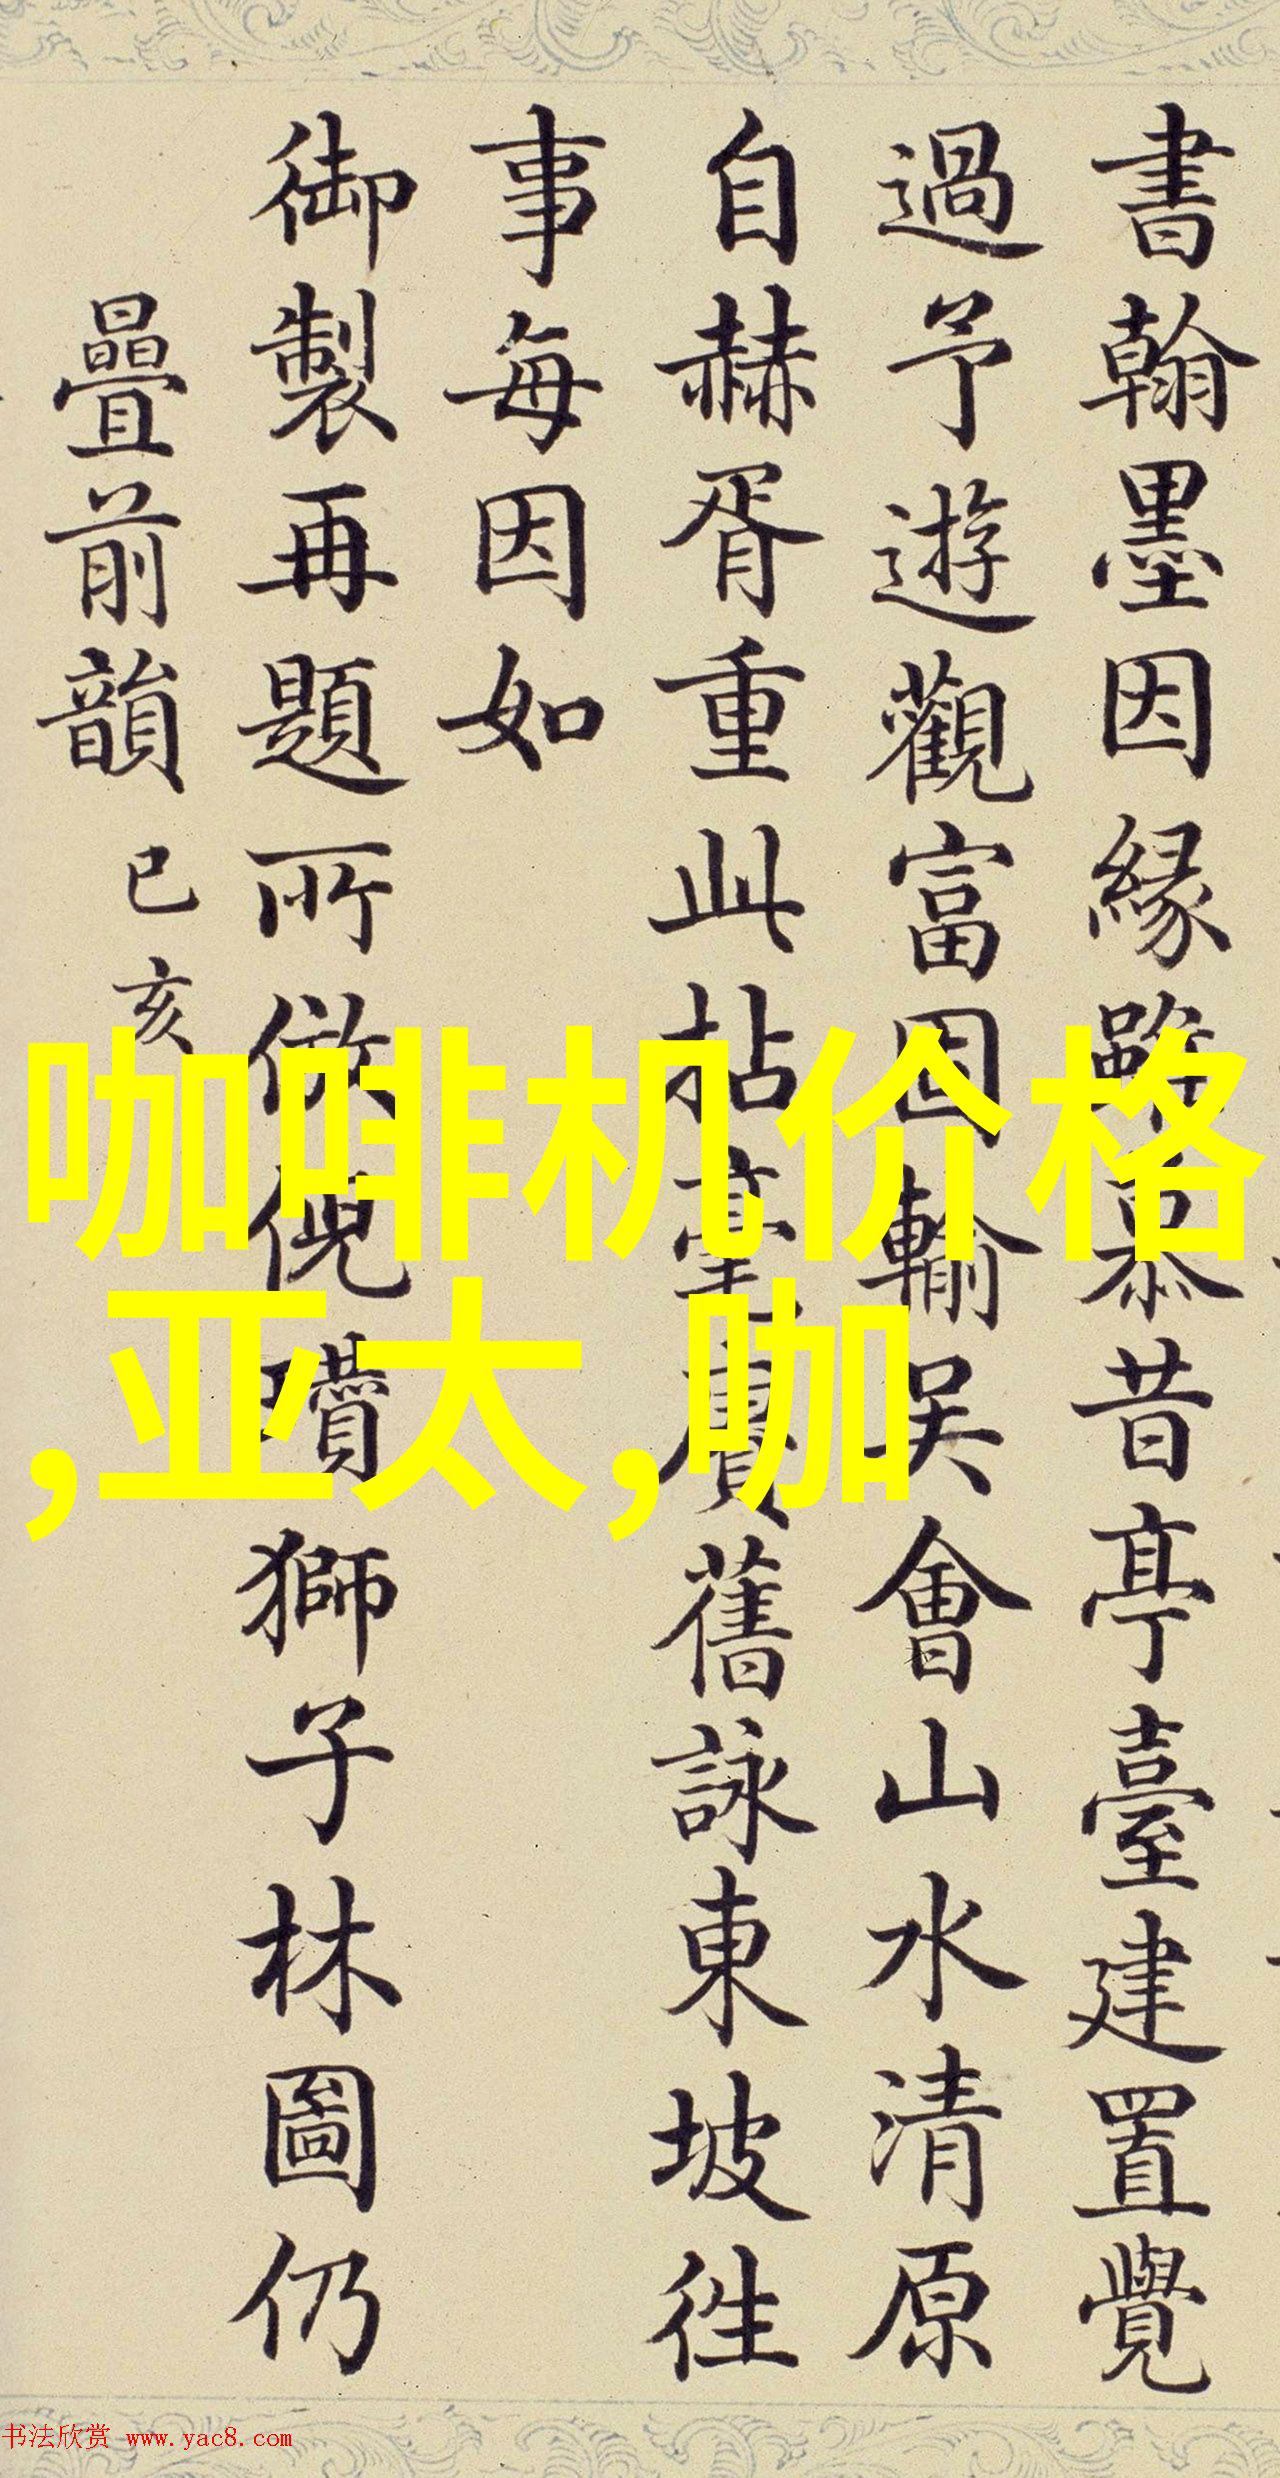 書翰墨因緣路慕昔亭臺建置覺
過予遊觀富因輸吴會山水清原
自赫胥重此拈毫賡舊詠東坡徃
事每因如
御製再題所倣倪瓚獅子林圖仍
疊前韻 己亥
咖啡机价格
,亚太,咖
书法欣赏 www.yac8.com